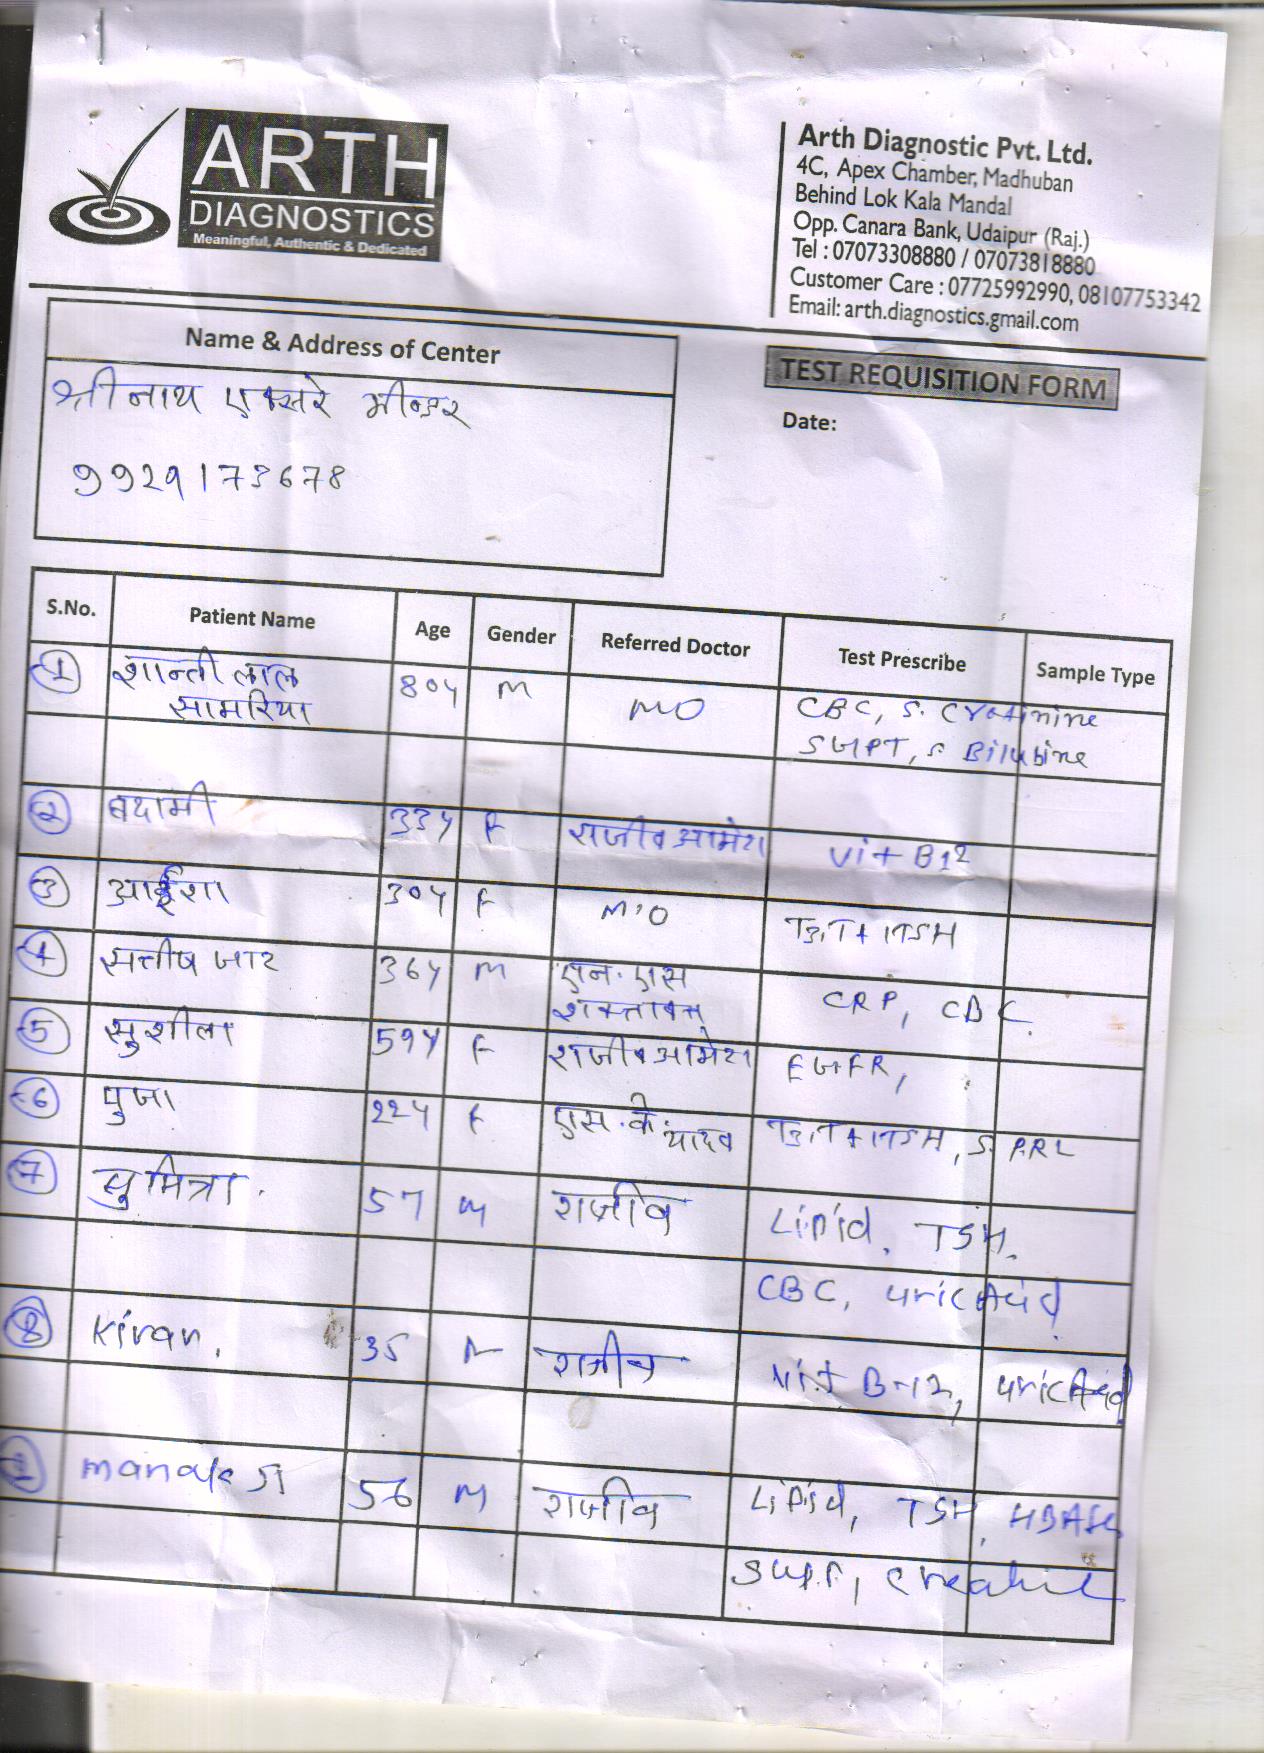 ARTH
DIAGNOSTICS
Meaningful, Authentic & Dedicated
Arth Diagnostic Pvt. Ltd.
4C, Apex Chamber, Madhuban
Behind Lok Kala Mandal
Opp. Canara Bank, Udaipur (Raj.)
Tel : 07073308880 / 07073818880
Customer Care : 07725992990, 08107753342
Email: arth.diagnostics.gmail.com
Name & Address of Center
TEST REQUISITION FORM
Date:
श्रीनाथ एक्सरे भीन्डर
9929173678
S.No. Patient Name Age Gender Referred Doctor Test Prescribe Sample Type
1 शान्ती लाल 80y M MO CBC, S. Creatinine
सामरिया SGPT, S. Bilubine
2 बदामी 33y F राजीव आमेटा Vit B12
3 आईशा 30y F M.O T3,T4,TSH
4 सत्तीष जाट 36y M एन.एस CRP, CBC
शक्तावत
5 सुशीला 59y F राजीव आमेटा EGFR,
6 पुजा 22y F एस.के.यादव T3,T4,TSH, S. PRL
7 सुमित्रा. 57 M राजीव Lipid, TSH.
CBC, uric Acid
8 Kiran. 35 राजीव Vit B-12, uric Acid
जी 56 M राजीव Lipid, TSH,